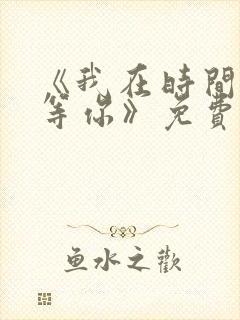 《我在時間
等你》免費
鱼水之歡